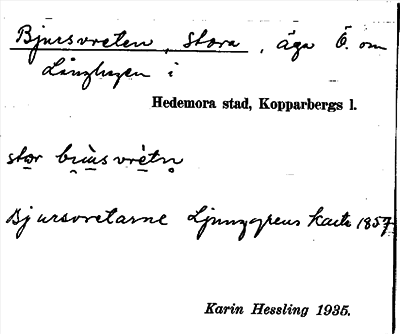 Bjursvreten, stora, äga Ö. om
Långhagen i
Hedemora stad, Kopparbergs l.
stor bjùs vrètn̥
Bjursvretarne Ljunggrens karta 1857
Karin Hessling 1935.